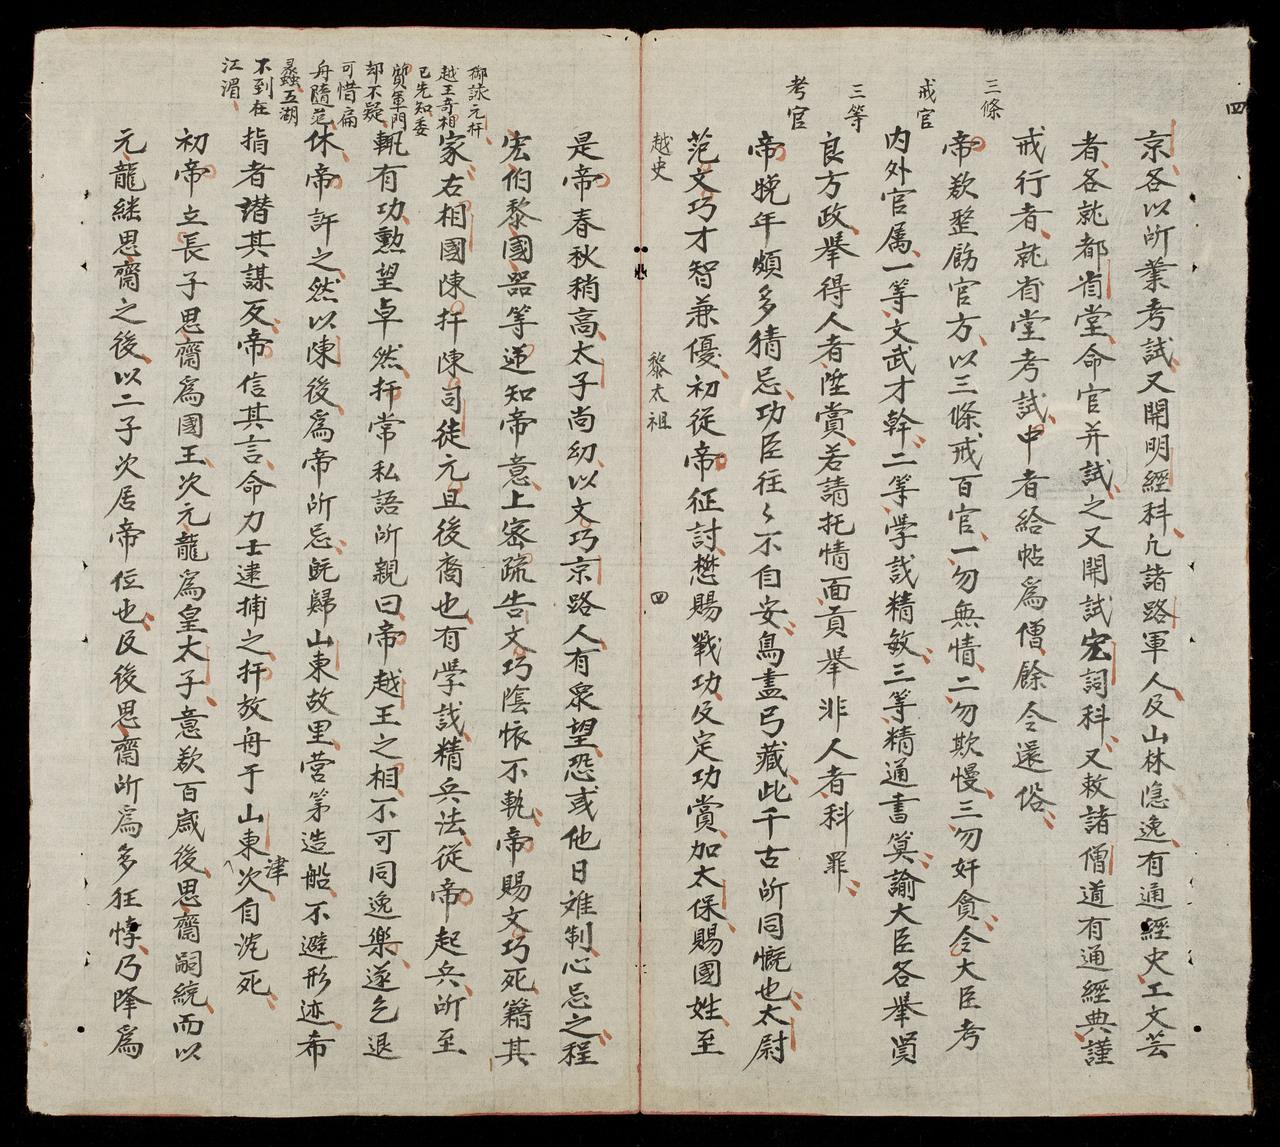 四
京各以所業考試又開明經科凡諸路軍人及山林隱逸有通經史工文芸
者各就都省堂命官并試之又開試宏詞科又敕諸僧道有通經典謹
戒行者就省堂考試中者給帖爲僧餘令還俗
三條
帝欲整飭官方以三條戒百官一勿無情二勿欺慢三勿奸貪令大臣考
戒官
内外官属一等文武才幹二等學識精敏三等精通書筭諭大臣各舉賢
三等
良方政舉得人者陞賞若請托情面貢舉非人者科罪
考官
帝晚年頗多猜忌功臣往々不自安鳥盡弓藏此千古所同慨也太尉
范文巧才智兼優初從帝征討懋賜戰功及定功賞加太保賜國姓至
越史
黎太祖
四
是帝春秋稍高太子尚幼以文巧京路人有衆望恐或他日难制心忌之程
宏伯黎國器等逆知帝意上密疏告文巧陰懷不軌帝賜文巧死籍其
御詠元扞
越王奇相
已先知委
質軍門
却不疑
可惜扁
舟隨范
蠡五湖
不到在
江湄
家右相國陳扞陳司徒元旦後裔也有學識精兵法從帝起兵所至
輒有功勳望卓然扞常私語所親曰帝越王之相不可同逸樂遂乞退
休帝許之然以陳後爲帝所忌既歸山東故里营第造船不避形迹希
指者谮其謀反帝信其言命力士逮捕之扞放舟于山東次自沈死
津
初帝立長子思齊爲國王次元龍爲皇太子意欲百歲後思齊嗣統而以
元龍継思齊之後以二子次居帝位也及後思齊所爲多狂悖乃降爲